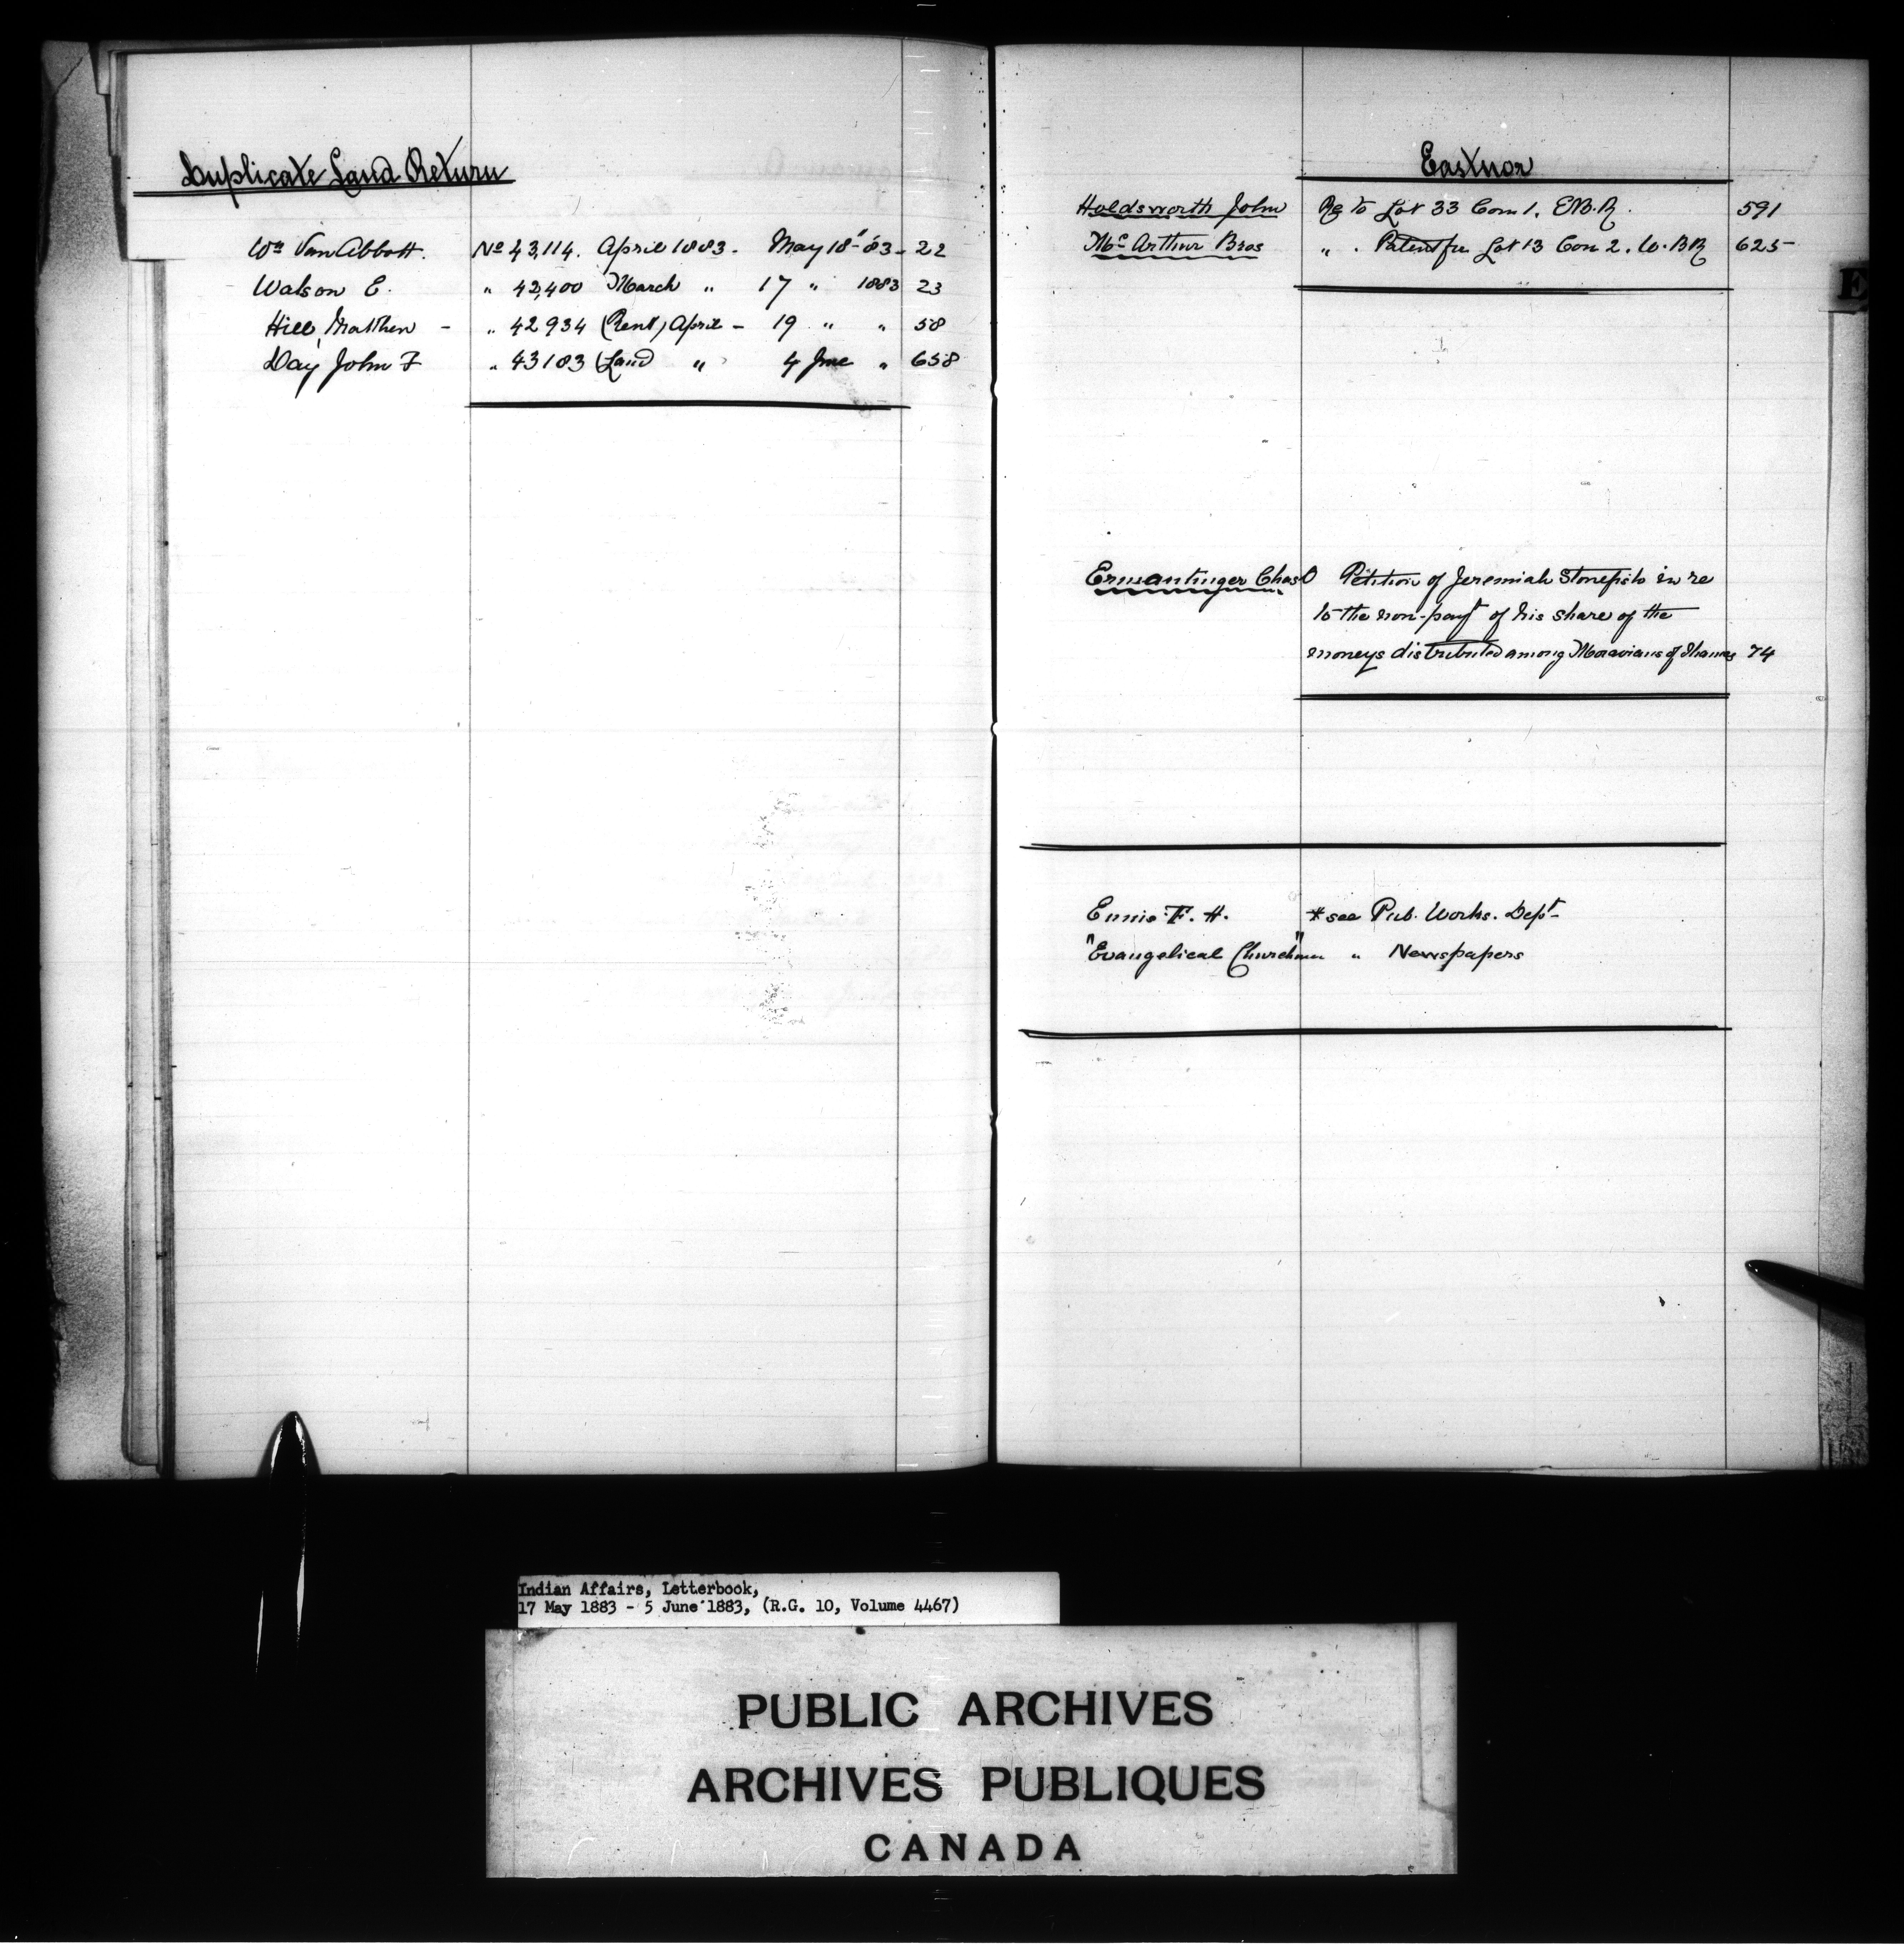 Duplicate Land Return
Wm Van Abbott. No 43,114. April 1883. May 18th '83 - 22
Watson E. " 42,400 March " 17 " 1883 23
Hill, Matthew - " 42934 (Rent) April - 19 " " 58
Day John F " 43183 (Land " 4 June " 658
Eastnor
Holdsworth John Re to Lot 33 Con 1. E.B.R. 591
McArthur Bros " . Patent for Lot 13 Con 2. W.B.R 625
Ermantinger Chas O Petition of Jeremiah Stonefish in re
to the non-payt of his share of the
moneys distributed among Moravians of Thames 74
Ennis F. H. * see Pub. Works. Dept
"Evangelical Churchman" " Newspapers
E
Indian Affairs, Letterbook,
17 May 1883 - 5 June 1883, (R.G. 10, Volume 4467)
PUBLIC ARCHIVES
ARCHIVES PUBLIQUES
CANADA